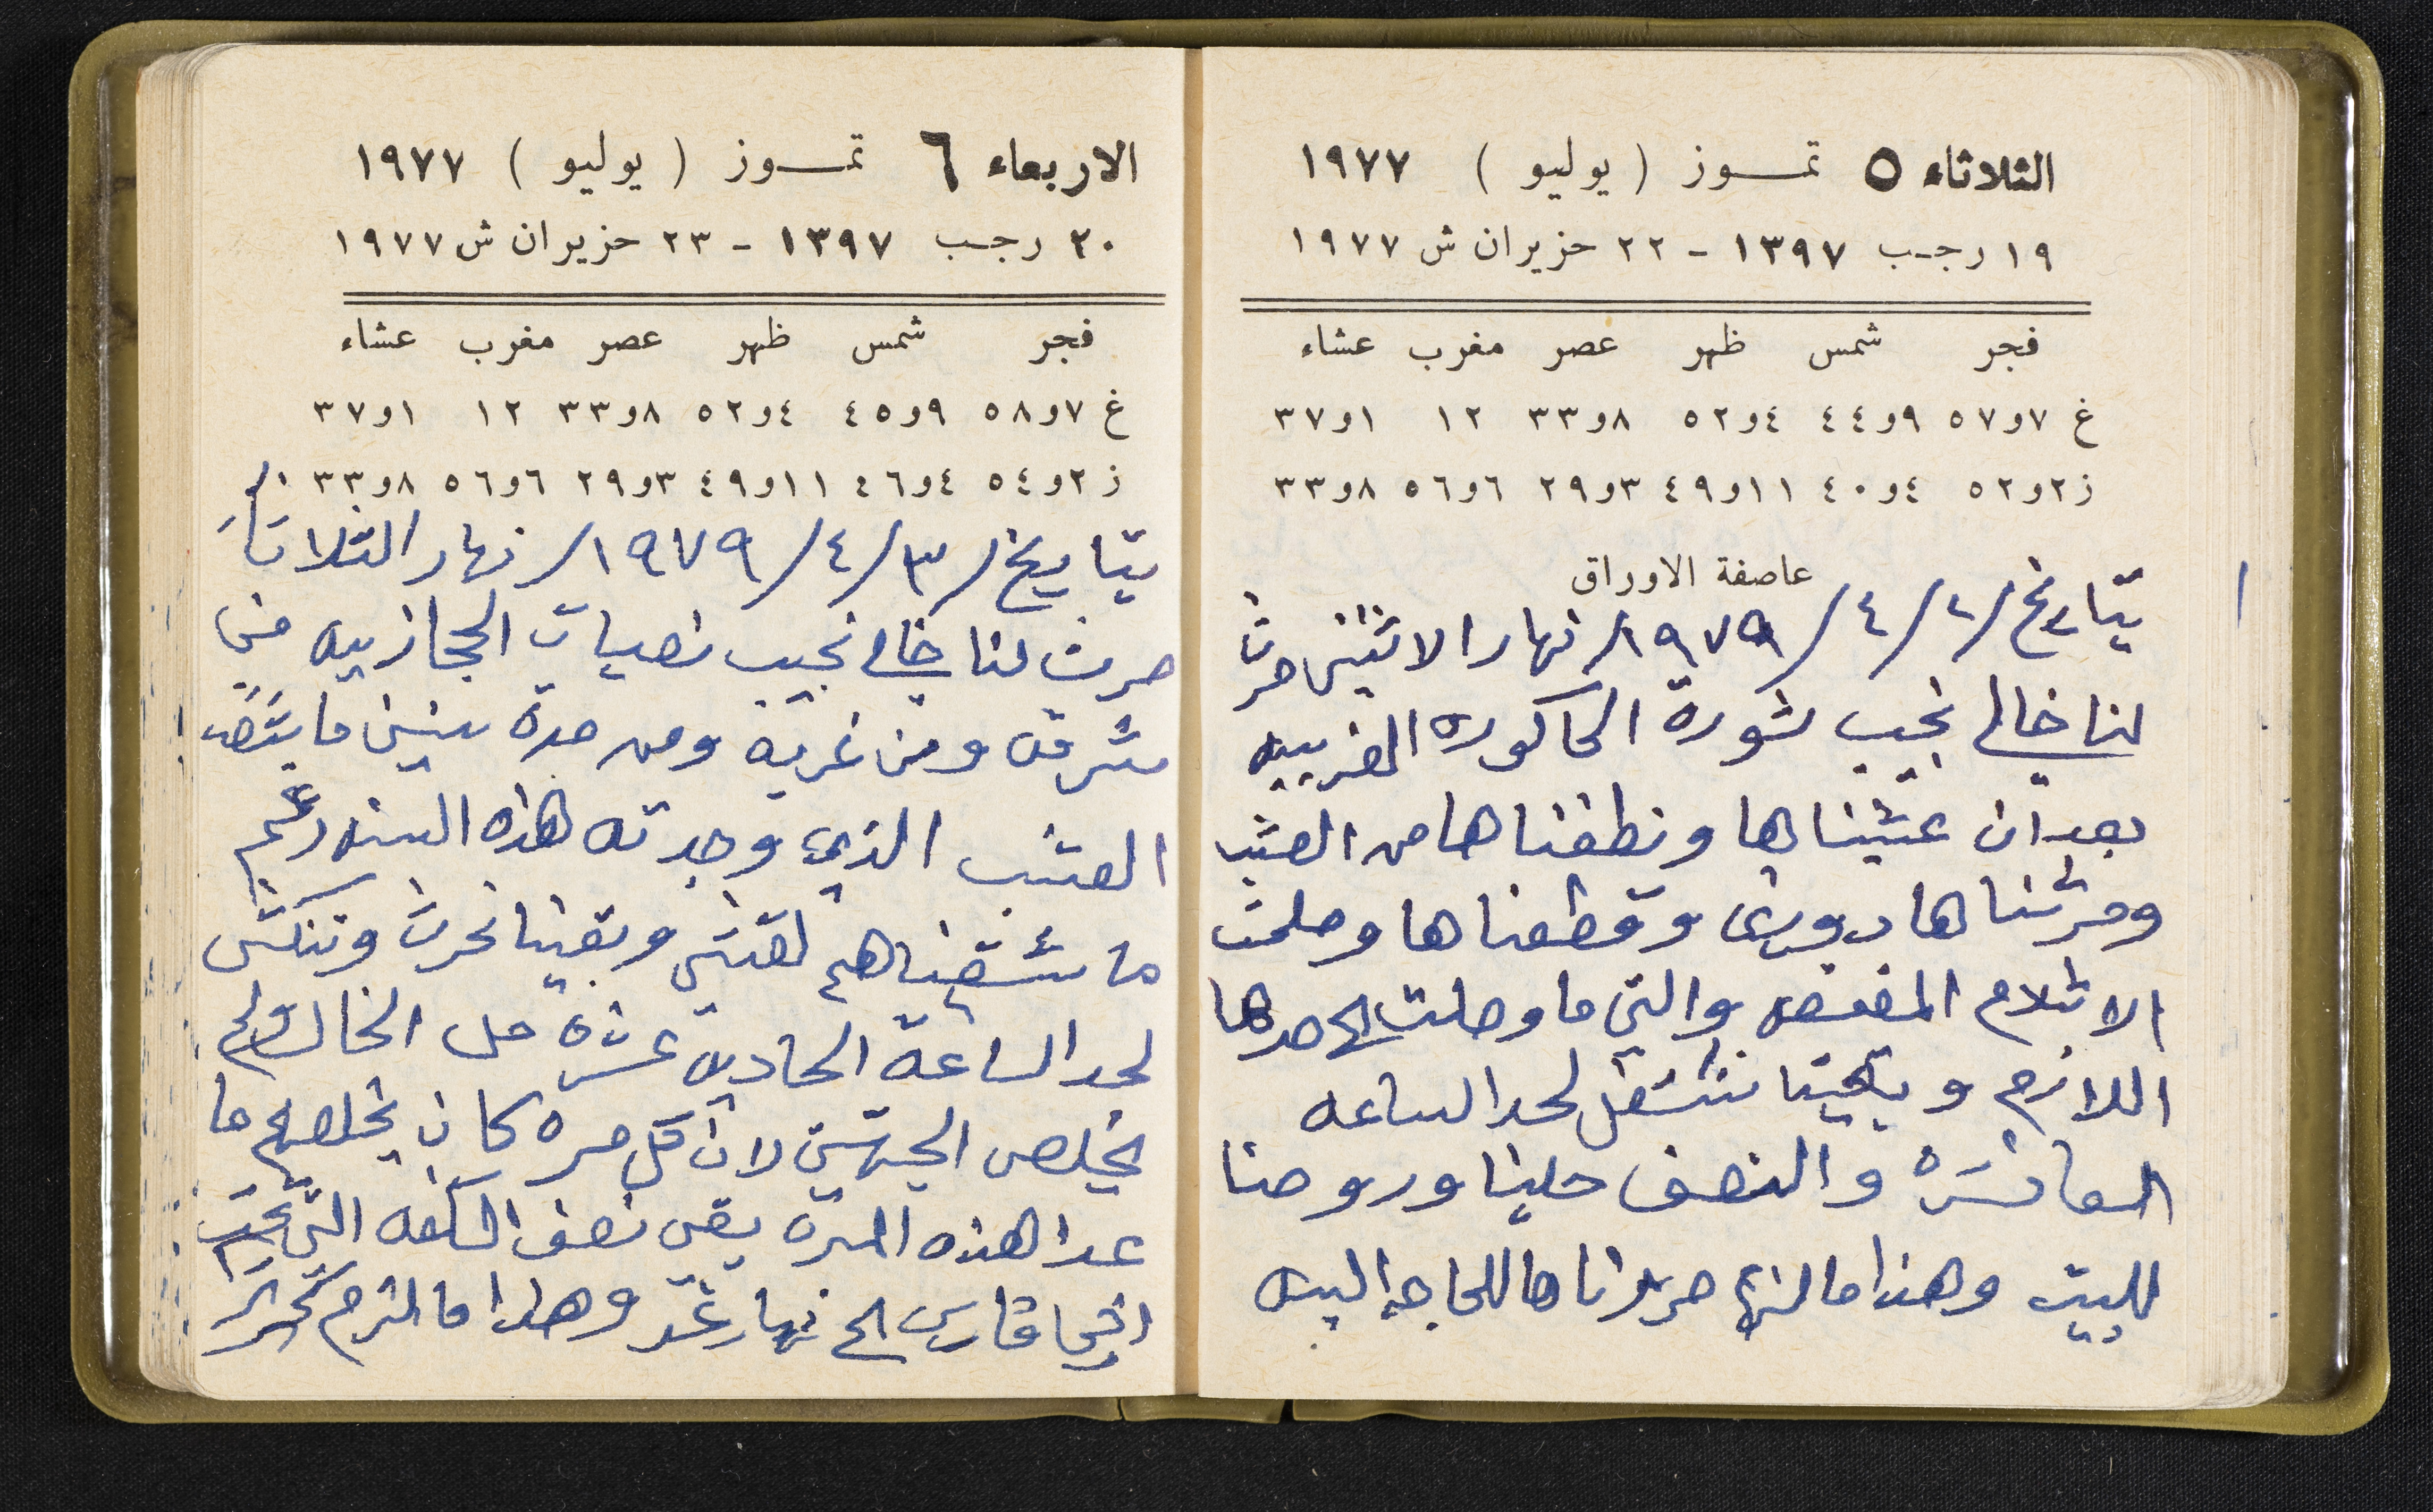 الثلاثاء ٥ تمـــوز ( يوليو ) ١٩٧٧
١٩ رجـب ١٣٩٧ - ٢٢ حزيران ش ١٩٧٧
فجر شمس ظهر عصر مغرب عشاء
غ ٧و٥٧ ٩و٤٤ ٤و٥٢ ٨و٣٣ ١٢ ١و٣٧
ز ٢و٥٢ ٤و٤٠ ١١و٤٩ ٣و٢٩ ٦و٥٦ ٨و٣٣
عاصفة الاوراق
بتاريخ /٢/ ٤/ ١٩٧٩/ نهار الاثنين حرث
لنا خالي نجيب شورة الحاكوره الغربيه
بعد ان عشبناها ونظفناها من العشب
وحرثناها دورين وقطعناها وصلحت
الاتلام والتي ما وصلت الى حدها
اللازم وبقينا نشتغل لحد الساعه
العاشره والنصف حلينا وروحنا
للبيت وهذا ما لزم حررناها للحاجه اليه
الاربعاء ٦ تمـــوز ( يوليو ) ١٩٧٧
٢٠ رجـب ١٣٩٧ - ٢٣ حزيران ش ١٩٧٧
فجر شمس ظهر عصر مغرب عشاء
غ ٧و٥٨ ٩و٤٥ ٤و٥٢ ٨و٣٣ ١٢ ١و٣٧
ز ٢و٥٤ ٤و٤٦ ١١و٤٩ ٣و٢٩ ٦و٥٦ ٨و٣٣
بتاريخ /٣/ ٤/ ١٩٧٩/ نهار الثلاثاء
حرث لنا خالي نجيب نصبات الحجازيه من
شرقه ومن غربه ومن مدة سنين ما
العشب الذي وجدته هذه السنه رغم
ما وبقينا نحرث وننكش
لحد الساعة الحادية عشره حل الخال ولم
يخلص الجهتين لان كل مره كان يخلصهم ما
عدا هذه المره بقي نصف الشقفه التي تحت
اخي فارس الى نهار غد وهذا ما لزم تحريره